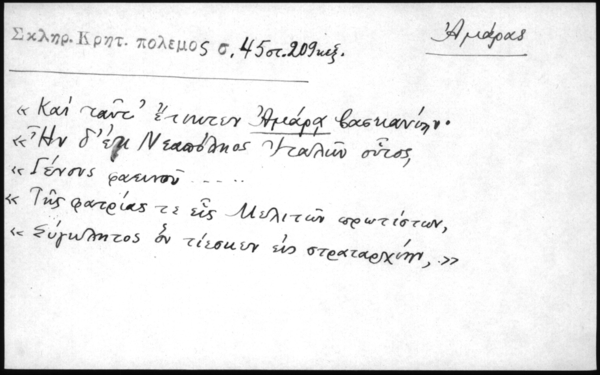 Σκληρ. Κρητ. πολεμος σ. 45 στ. 209 κεξ.
Ἀμάρας
« Καὶ ταῦτ' ἔτικτεν Ἀμάρα βασκανίην.
« Ἦν δ' ἐκ Νεαπόλης Ἰταλῶν οὗτος,
« Γένους φαεινοῦ .....
« Τῆς φατρίας τε εἷς Μελιτῶν πρωτίστων,
« Σύγκλητος ὃν τίεσκεν εἰς στραταρχίην, »